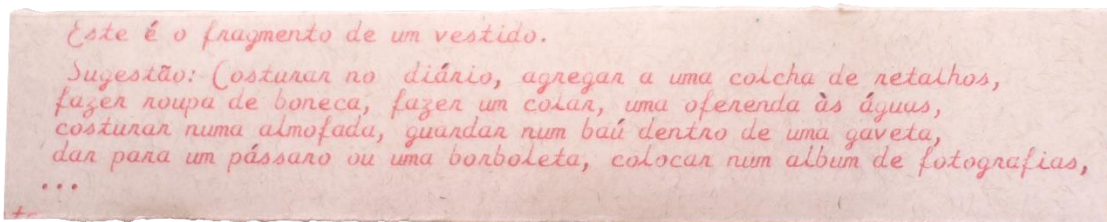 Este é o fragmento de um vestido.
Sugestão: Costurar no diário, agregar a uma colcha de retalhos,
fazer roupa de boneca, fazer um colar, uma oferenda às águas,
costurar numa almofada, guardar num baú dentro de uma gaveta,
dar para um pássaro ou uma borboleta, colocar num album de fotografias,
...